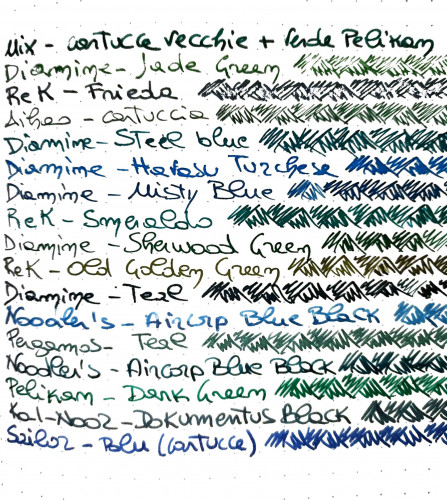 Mix - cartucce vecchie + Verde Pelikan
Diamine - Jade Green
ReK - Frieda
cartuccia
Diamine - Steel blue
Diamine - Havasu Turchese
Diamine - Misty Blue
ReK - Smeraldo
Diamine - Sherwood Green
ReK - Old Golden Green
Diamine - Teal
Noodler's - Aircorp Blue Black
Pergamos - Teal
Noodler's - Aircorp Blue Black
Pelikan - Dark Green
Dokumentus Black
Sailor - Blu (cartucce)